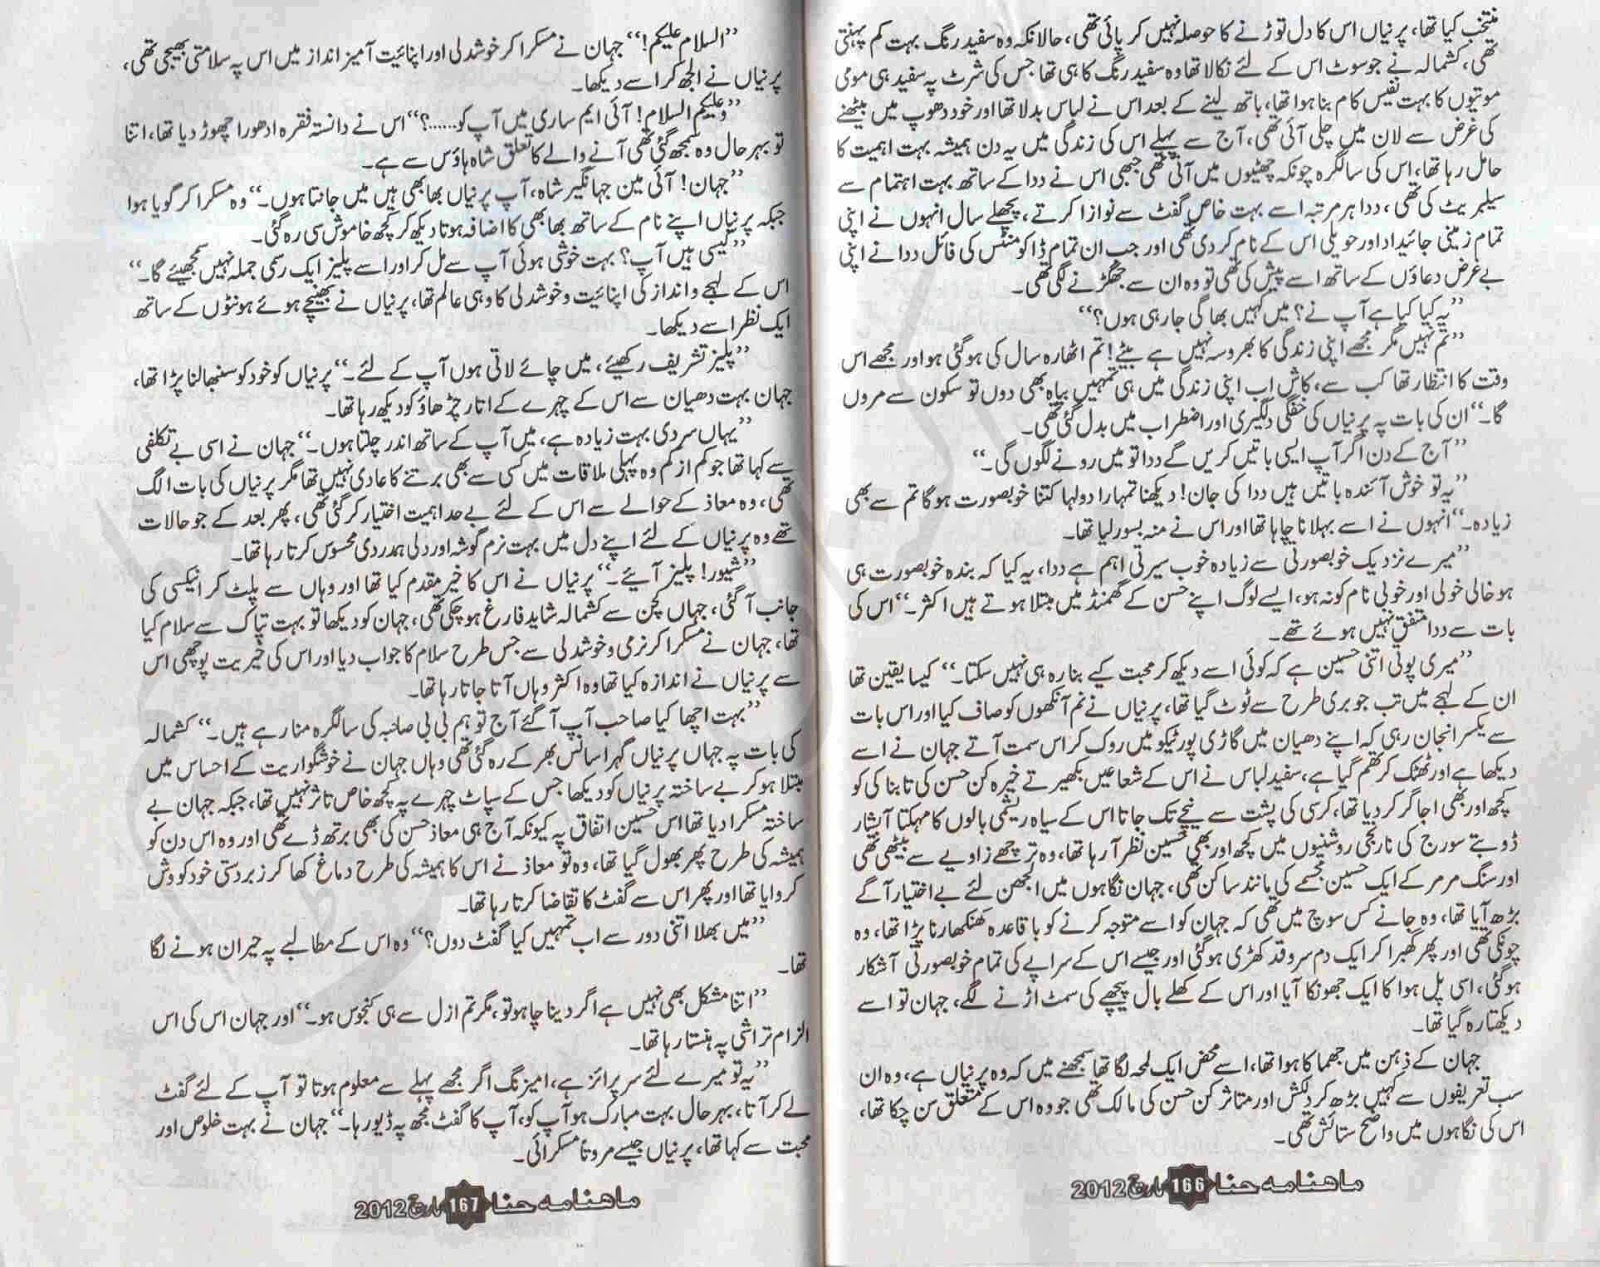 منتخب کیا تھا، پرنیاں اس کا دل توڑنے کا حوصلہ نہیں کر پائی تھی، حالانکہ وہ سفید رنگ بہت کم پہنتی
تھی، کشمالہ نے جو سوٹ اس کے لئے نکالا تھا وہ سفید رنگ کا ہی تھا جس کی شرٹ پہ سفید ہی مومی
موتیوں کا بہت نفیس کام بنا ہوا تھا، باتھ لینے کے بعد اس نے لباس بدلا تھا اور خود دھوپ میں بیٹھنے
کی غرض سے لان میں چلی آئی تھی، آج سے پہلے اس کی زندگی میں یہ دن ہمیشہ بہت اہمیت کا
حامل رہا تھا، اس کی سالگرہ چونکہ چھٹیوں میں آتی تھی جبھی اس نے ددا کے ساتھ بہت اہتمام سے
سیلیبریٹ کی تھی، ددا ہر مرتبہ اسے بہت خاص گفٹ سے نوازا کرتے، پچھلے سال انہوں نے اپنی
تمام زمینی جائیداد اور حویلی اس کے نام کر دی تھی اور جب ان تمام ڈاکومنٹس کی فائل ددا نے اپنی
بے غرض دعاؤں کے ساتھ اسے پیش کی تھی تو وہ ان سے جھگڑنے لگی تھی۔
”یہ کیا کیا ہے آپ نے؟ میں کہیں بھاگی جا رہی ہوں؟“
”تم نہیں مگر مجھے اپنی زندگی کا بھروسہ نہیں ہے بیٹے! تم اٹھارہ سال کی ہو گئی ہو اور مجھے اس
وقت کا انتظار تھا کب سے، کاش اب اپنی زندگی میں ہی تمہیں بیاہ بھی دوں تو سکون سے مروں
گا۔“ ان کی بات پہ پرنیاں کی خفگی دلگیری اور اضطراب میں بدل گئی تھی۔
”آج کے دن اگر آپ ایسی باتیں کریں گے ددا تو میں رونے لگوں گی۔“
”یہ تو خوش آئندہ باتیں ہیں ددا کی جان! دیکھنا تمہارا دولہا کتنا خوبصورت ہو گا تم سے بھی
زیادہ۔“ انہوں نے اسے بہلانا چاہا تھا اور اس نے منہ بسور لیا تھا۔
”میرے نزدیک خوبصورتی سے زیادہ خوب سیرتی اہم ہے ددا، یہ کیا کہ بندہ خوبصورت ہی
ہو خالی خولی اور خوبی نام کو نہ ہو، ایسے لوگ اپنے حسن کے گھمنڈ میں مبتلا ہوتے ہیں اکثر۔“ اس کی
بات سے ددا متفق نہیں ہوئے تھے۔
”میری پوتی اتنی حسین ہے کہ کوئی اسے دیکھ کر محبت کیے بنا رہ ہی نہیں سکتا۔“ کیسا یقین تھا
ان کے لہجے میں تب جو بری طرح سے ٹوٹ گیا تھا، پرنیاں نے نم آنکھوں کو صاف کیا اور اس بات
سے یکسر انجان رہی کہ اپنے دھیان میں گاڑی پورٹیکو میں روک کر اس سمت آتے جہان نے اسے
دیکھا ہے اور ٹھٹک کر تھم گیا ہے، سفید لباس نے اس کے شعاعیں بکھیرتے خیرہ کن حسن کی تابناکی کو
کچھ اور بھی اجاگر کر دیا تھا، کرسی کی پشت سے نیچے تک جاتا اس کے سیاہ ریشمی بالوں کا مہکتا آبشار
ڈوبتے سورج کی نارنجی روشنیوں میں کچھ اور بھی حسین نظر آ رہا تھا، وہ ترچھے زاویے سے بیٹھی تھی
اور سنگ مرمر کے ایک حسین مجسمے کی مانند ساکن تھی، جہان نگاہوں میں الجھن لئے بے اختیار آگے
بڑھ آیا تھا، وہ جانے کس سوچ میں تھی کہ جہان کو اسے متوجہ کرنے کو باقاعدہ کھنکھارنا پڑا تھا، وہ
چونکی تھی اور پھر گھبرا کر ایک دم سروقد کھڑی ہو گئی اور جیسے اس کے سراپے کی تمام خوبصورتی آشکار
ہو گئی، اسی پل ہوا کا ایک جھونکا آیا اور اس کے کھلے بال پیچھے کی سمت اڑنے لگے، جہان تو اسے
دیکھتا رہ گیا تھا۔
جہان کے ذہن میں جھماکا ہوا تھا، اسے محض ایک لمحہ لگا تھا سمجھنے میں کہ وہ پرنیاں ہے، وہ ان
سب تعریفوں سے کہیں بڑھ کر دلکش اور متاثر کن حسن کی مالک تھی جو وہ اس کے متعلق سن چکا تھا،
اس کی نگاہوں میں واضح ستائش تھی۔
ماہنامہ حنا 166 مارچ 2012
”السلام علیکم!“ جہان نے مسکرا کر خوشدلی اور اپنائیت آمیز انداز میں اس پہ سلامتی بھیجی تھی،
پرنیاں نے الجھ کر اسے دیکھا۔
”وعلیکم السلام! آئی ایم ساری میں آپ کو......؟“ اس نے دانستہ فقرہ ادھورا چھوڑ دیا تھا، اتنا
تو بہرحال وہ سمجھ گئی تھی آنے والے کا تعلق شاہ ہاؤس سے ہے۔
”جہان! آئی مین جہانگیر شاہ، آپ پرنیاں بھابھی ہیں میں جانتا ہوں۔“ وہ مسکرا کر گویا ہوا
جبکہ پرنیاں اپنے نام کے ساتھ بھابھی کا اضافہ ہوتا دیکھ کر کچھ خاموش سی رہ گئی۔
”کیسی ہیں آپ؟ بہت خوشی ہوئی آپ سے مل کر اور اسے پلیز ایک رسمی جملہ نہیں سمجھیئے گا۔“
اس کے لہجے و انداز کی اپنائیت و خوشدلی کا وہی عالم تھا، پرنیاں نے بھینچے ہوئے ہونٹوں کے ساتھ
ایک نظر اسے دیکھا۔
”پلیز تشریف رکھیئے، میں چائے لاتی ہوں آپ کے لئے۔“ پرنیاں کو خود کو سنبھالنا پڑا تھا،
جہان بہت دھیان سے اس کے چہرے کے اتار چڑھاؤ کو دیکھ رہا تھا۔
”یہاں سردی بہت زیادہ ہے، میں آپ کے ساتھ اندر چلتا ہوں۔“ جہان نے اسی بے تکلفی
سے کہا تھا جو کم از کم وہ پہلی ملاقات میں کسی سے بھی برتنے کا عادی نہیں تھا مگر پرنیاں کی بات الگ
تھی، وہ معاذ کے حوالے سے اس کے لئے بے حد اہمیت اختیار کر گئی تھی، پھر بعد کے جو حالات
تھے وہ پرنیاں کے لئے اپنے دل میں بہت نرم گوشہ اور دلی ہمدردی محسوس کرتا رہا تھا۔
”شیور! پلیز آیئے۔“ پرنیاں نے اس کا خیر مقدم کیا تھا اور وہاں سے پلٹ کر انیکسی کی
جانب آ گئی، جہاں کچن سے کشمالہ شاید فارغ ہو چکی تھی، جہان کو دیکھا تو بہت تپاک سے سلام کیا
تھا، جہان نے مسکرا کر نرمی و خوشدلی سے جس طرح سلام کا جواب دیا اور اس کی خیریت پوچھی اس
سے پرنیاں نے اندازہ کیا تھا وہ اکثر وہاں آتا جاتا رہا تھا۔
”بہت اچھا کیا صاحب آپ آ گئے آج تو ہم بی بی صاحبہ کی سالگرہ منا رہے ہیں۔“ کشمالہ
کی بات پہ جہاں پرنیاں گہرا سانس بھر کے رہ گئی تھی وہاں جہان نے خوشگواریت کے احساس میں
مبتلا ہو کر بے ساختہ پرنیاں کو دیکھا جس کے سپاٹ چہرے پہ کچھ خاص تاثر نہیں تھا، جبکہ جہان بے
ساختہ مسکرا دیا تھا اس حسین اتفاق پہ کیونکہ آج ہی معاذ حسن کی بھی برتھ ڈے تھی اور وہ اس دن کو
ہمیشہ کی طرح پھر بھول گیا تھا، وہ تو معاذ نے اس کا ہمیشہ کی طرح دماغ کھا کر زبردستی خود کو وش
کروایا تھا اور پھر اس سے گفٹ کا تقاضا کرتا رہا تھا۔
”میں بھلا اتنی دور سے اب تمہیں کیا گفٹ دوں؟“ وہ اس کے مطالبے پہ حیران ہونے لگا
تھا۔
”اتنا مشکل بھی نہیں ہے اگر دینا چاہو تو، مگر تم ازل سے ہی کنجوس ہو۔“ اور جہان اس کی اس
الزام تراشی پہ ہنستا رہا تھا۔
”یہ تو میرے لئے سرپرائز ہے، امیزنگ اگر مجھے پہلے سے معلوم ہوتا تو آپ کے لئے گفٹ
لے کر آتا، بہرحال بہت مبارک ہو آپ کو، آپ کا گفٹ مجھ پہ ڈیو رہا۔“ جہان نے بہت خلوص اور
محبت سے کہا تھا، پرنیاں جیسے مروتاً مسکرائی۔
ماہنامہ حنا 167 مارچ 2012